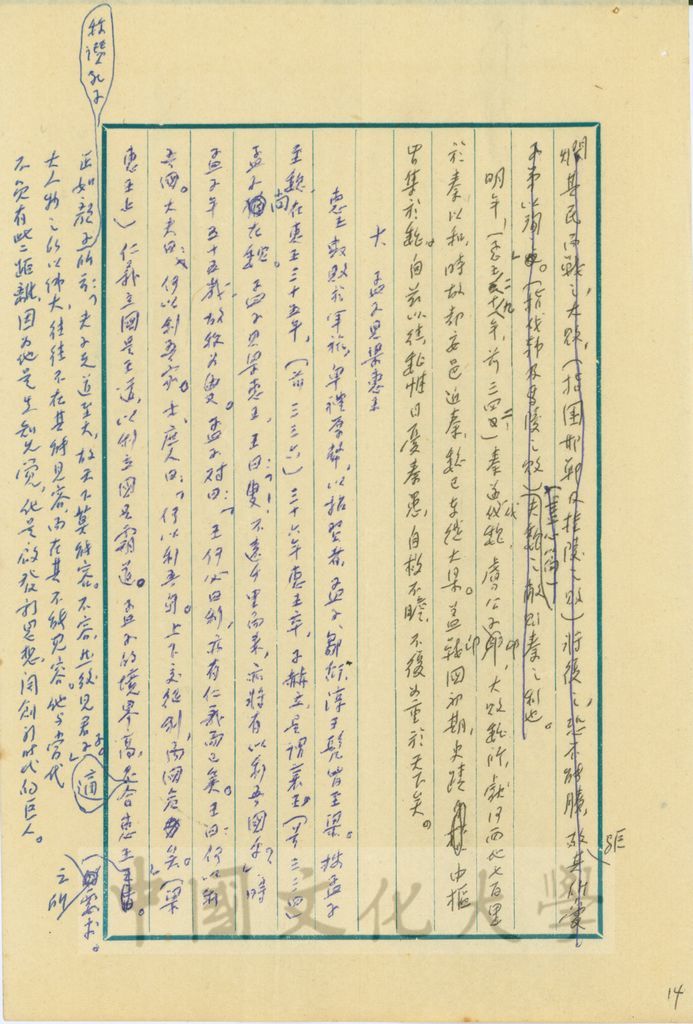 糜爛其民而戰之大敗，(指圍邯鄲及桂陵之敗)將復之，恐不能勝，故驅其所愛
子弟以殉之。」(指伐韓及馬陵之敗)(盡心篇)夫魏之敵則秦之利也。
明年，(惠王二九年，前三四二)秦遂伐魏，虜公子卬，大敗魏師，獻河西地七百里
於秦以和，時故都安邑近秦，魏已東徙大梁。蓋戰國初期史蹟中樞
皆集於魏，自茲以往，魏惟日憂秦患，自救不贍，不復為重於天下矣。
十 孟子見梁惠王
惠王數敗於軍旅，卑禮厚幣，以招賢者，孟子、鄒衍、淳于髡皆至梁。按孟子
至魏，在惠王三十五年，(前三三六)三十六年惠王卒，子赫立，是謂襄王(前三三四)
孟子尚在魏。孟子見梁惠王，王曰：「叟！不遠千里而來，亦將有以利吾國乎？」時
孟子年五十五歲，故稱為叟。孟子對曰：「王何必曰利，亦有仁義而已矣。王曰：何以利
吾國。大夫曰：何以利吾家。士、庶人曰：何以利吾身。上下交征利，而國危矣。」(梁
惠王上)仁義立國是王道，以利立國是霸道。孟子的境界高，不適合惠王所需求。
正如顏子所云：「夫子之道至大，故天下莫能容。不容，然後見君子。」
稱讚孔子
大人物之所以偉大，往往不在其能見容，而在其不能見容。他與當代
不免有此二距離，因為他是先知先覺，他是啟發新思想，開創新時代的巨人。
14
中國文化大學